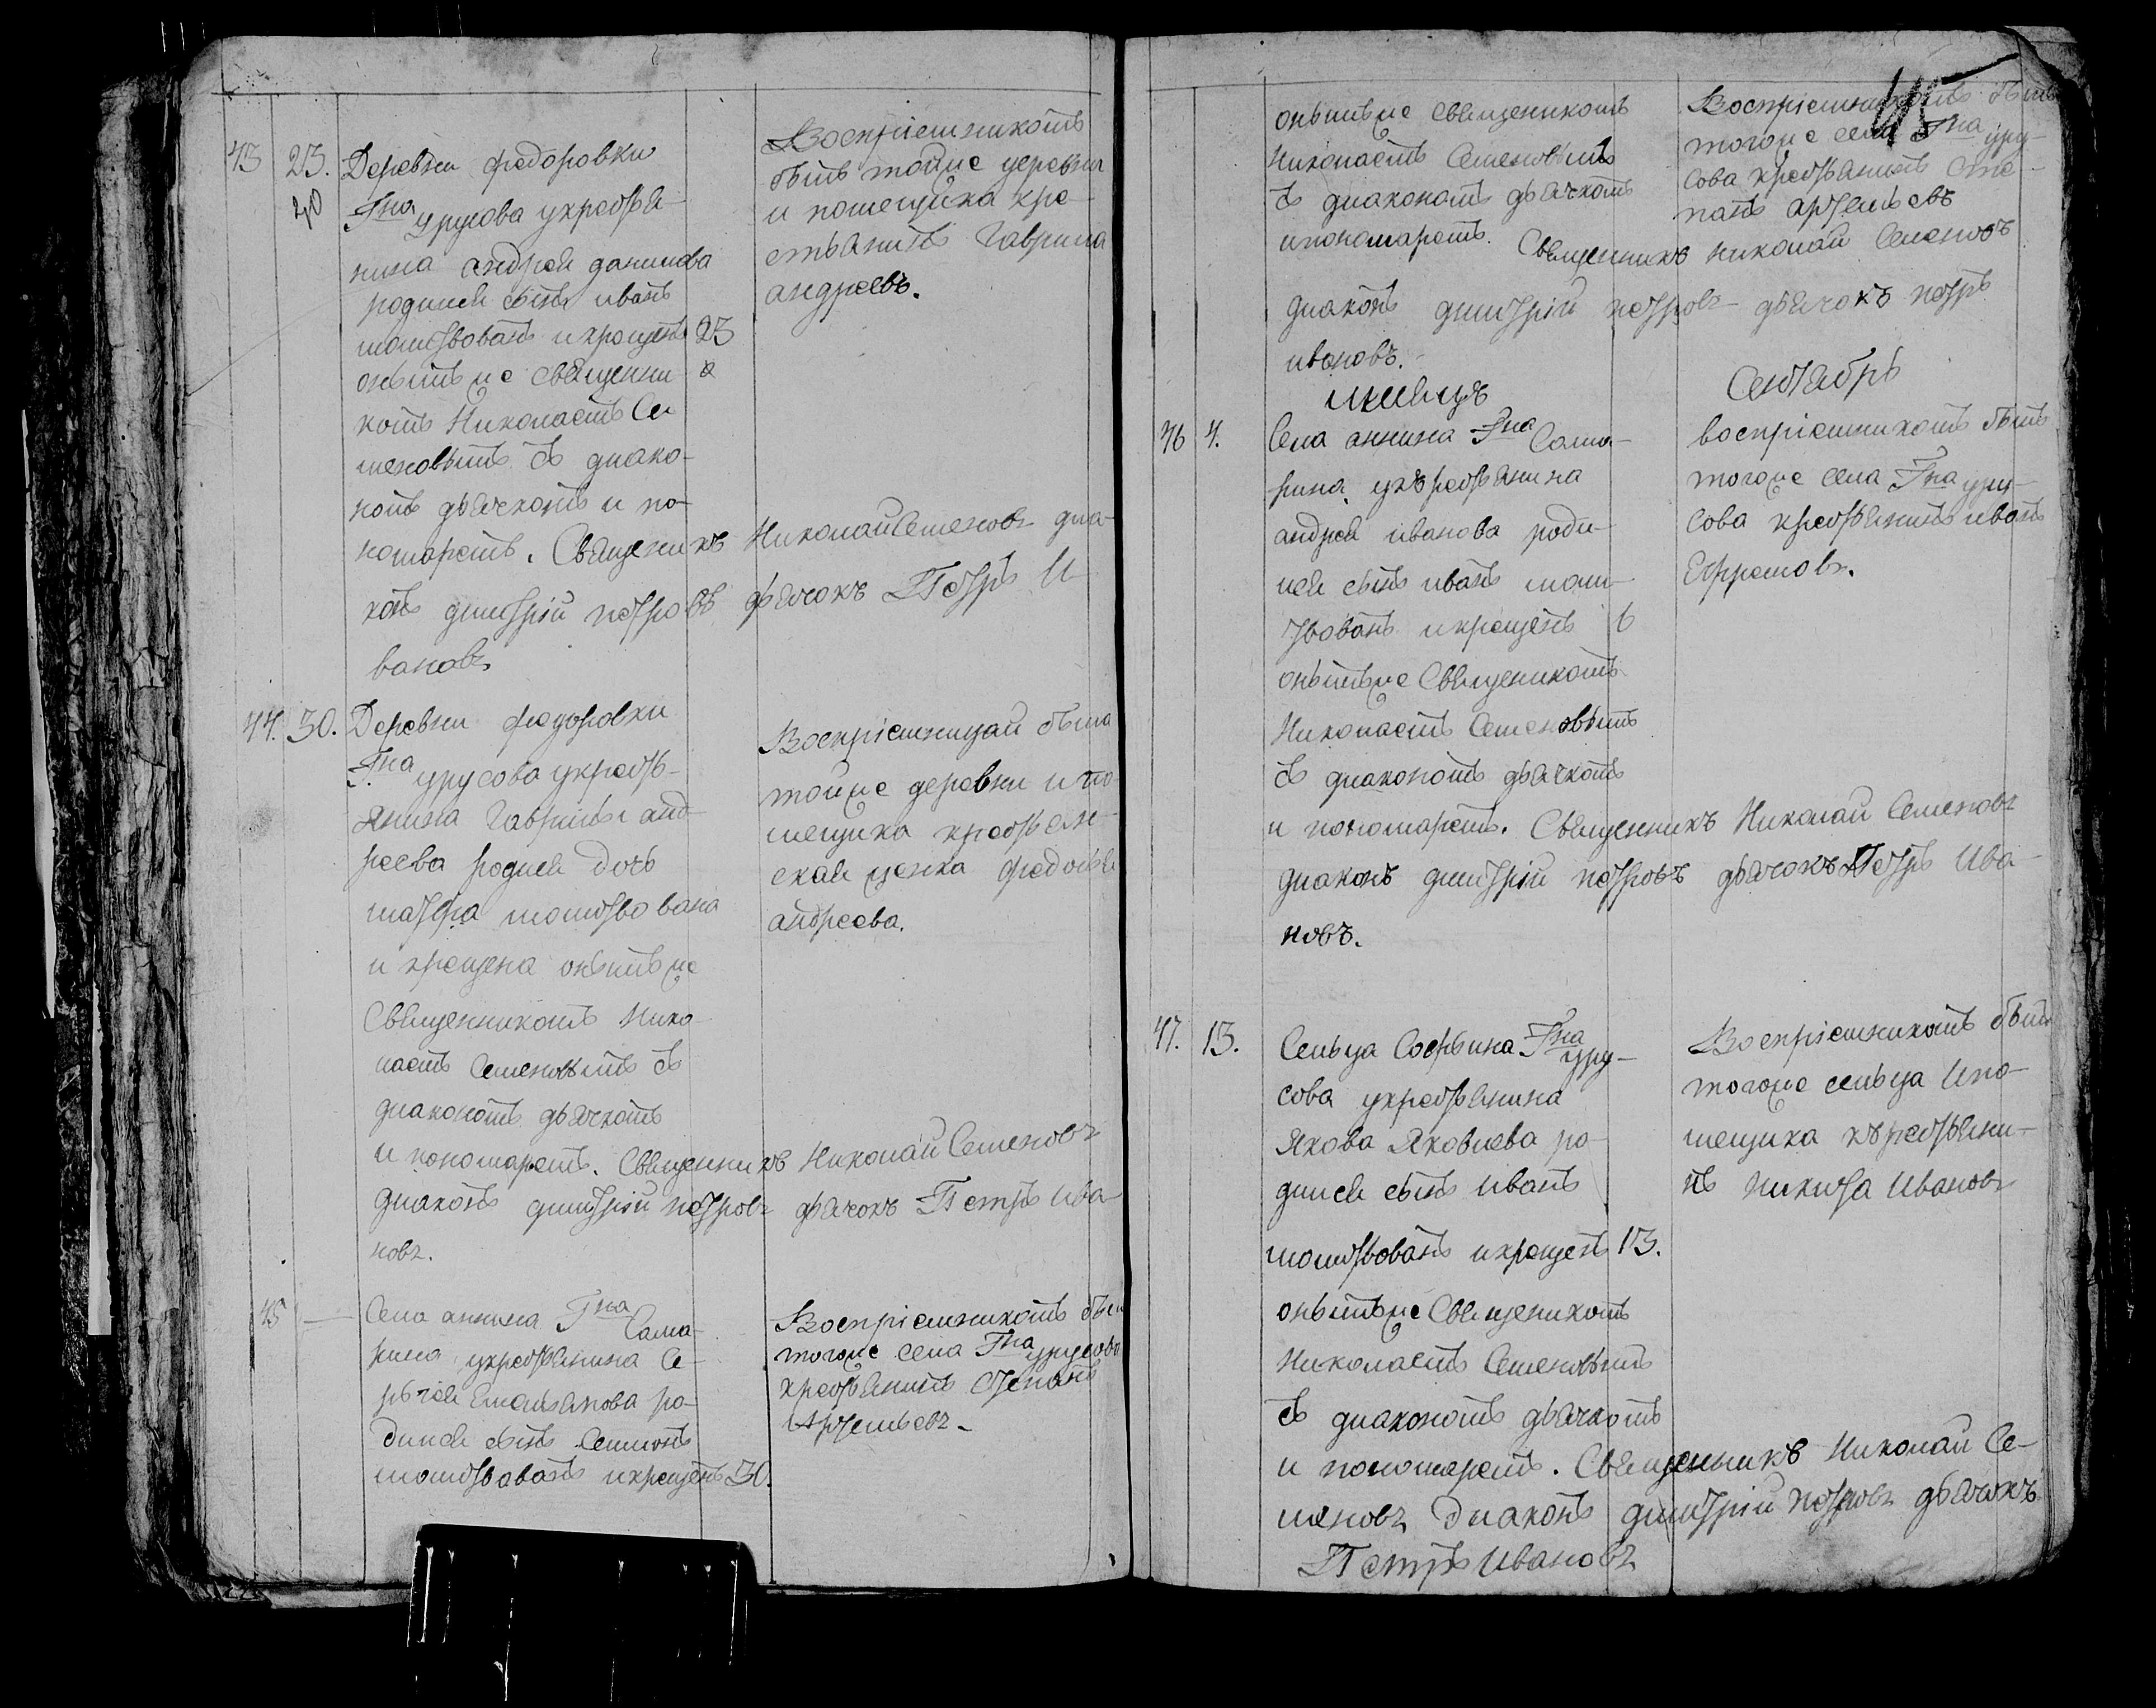 43
23.
40
Деревни федоровки
Гна урусова укрестья-
нина андрея данилова
родился сынъ иванъ
молитвованъ икрещенъ 23
онымъ же Священни
комъ Николаемъ Се
меновымъ съ диако-
номъ дьячкомъ и по-
номаремъ. Священикъ Николай Семеновъ диа-
конъ димитрій петровъ дьячокъ Петръ И
вановъ
Воспріемникомъ
былъ тойже деревни
и помещика кре-
стьянинъ Гаврила
андреевъ.
44.
30.
Деревни федоровки
Гна урусова укресть-
янина Гаврилы анд-
реева родися дочь
марфа молитвована
и крещена онымъ же
Священникомъ Нико
лаемъ Семеновымъ съ
диакономъ дьячкомъ
и пономаремъ. Священникъ Николай Семеновъ
диаконъ димитрій петровъ дьячокъ Петръ Ива
новъ.
Воспріемницей была
тойже деревни и по-
мещика крестьян-
ская женка федосья
андреева.
45
Села аннина Гна Сама-
рина укрестьянина Се-
ргея Емельянова ро-
дился сынъ Симионъ
молитвованъ икрещенъ 30.
Воспріемникомъ былъ
тогоже села Гна урусова
крестьянинъ Степанъ
Артемьевъ
45
онымъже Священикомъ
Николаемъ Семеновымъ
съ диакономъ дьячкомъ
ипономаремъ. Священникъ николай Семеновъ
диаконъ димитрій петровъ дьячокъ петръ
ивановъ.
Воспріемникомъ былъ
тогоже села Гна уру-
сова крестьянинъ Сте-
панъ артемьевъ
Сентябрь
46
4.
Села аннина Гна Сама-
рина укрестьянина
андрея иванова роди-
лся сынъ иванъ моли-
твованъ икрещенъ 6
онымъже Священикомъ
Николаемъ Семеновымъ
съ диакономъ дьячкомъ
и пономаремъ. Священникъ Николай Семеновъ
диаконъ димитрій петровъ дьячокъ Петръ Ива-
новъ.
воспріемникомъ былъ
тогоже села Гна уру-
сова крестьянинъ иванъ
Ефремовъ.
47.
13.
Сельца Софьина Гна уру-
сова укрестьянина
Якова Яковлева ро-
дился сынъ Иванъ
молитвованъ икрещенъ 13.
онымъже Священикомъ
Николаемъ Семеновымъ
съ диакономъ дьячкомъ
и пономаремъ. Священникъ Николай Се-
меновъ Диаконъ димитрій петровъ дьячокъ
Петръ Ивановъ
Воспріемникомъ былъ
тогоже сельца Ипо-
мещика крестьяни-
нъ Никита Ивановъ